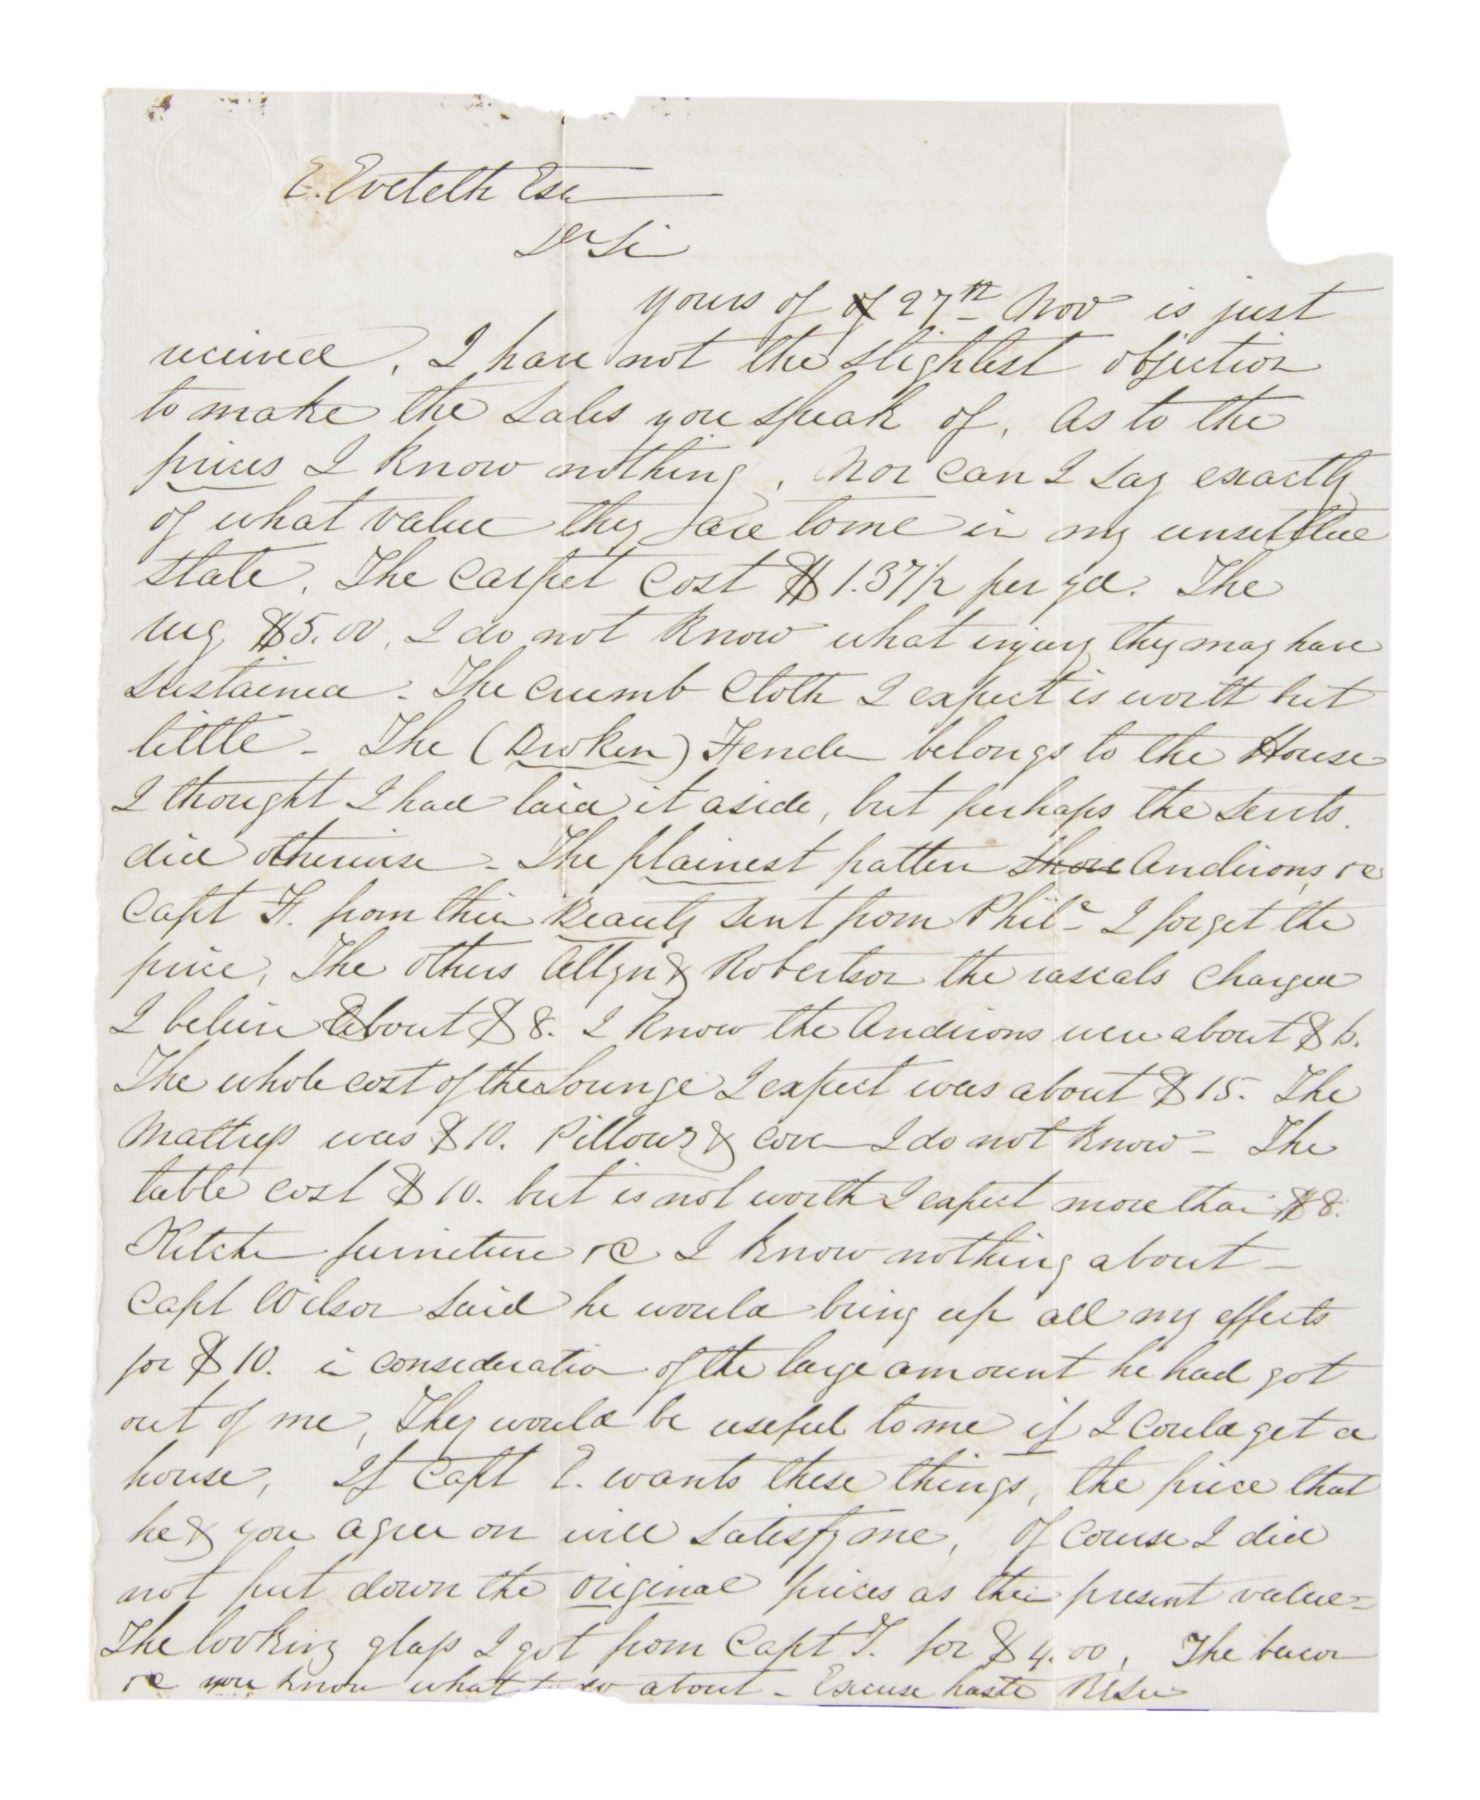 E. Eveleth Esq
Dr Sir
yours of of 27th Nov is just
received, I have not the slightest objection
to make the sales you speak of, As to the
prices I know nothing, Nor can I say exactly
of what value they are to me in my unsettled
state. The carpet cost $1.37 1/2 per yd. The
rug $5.00, I do not know what injury they may have
sustained - The crumb cloth I expect is worth but
little - The (Broken) Fender belongs to the House
I thought I had laid it aside, but perhaps the servts.
did otherwise - The plainest pattern Andirons, &c
Capt F. from their Beauty sent from Phila - I forget the
price, The others Allyn & Robertson the rascals charged
I believe About $8. I know the Andirons were about $6.
The whole cost of the Lounge I expect was about $15. The
Mattress was $10. Pillows & cover I do not know - The
table cost $10. but is not worth I expect more than $8.
Kitchen furniture &c I know nothing about -
Capt Wilson said he would bring up all my effects
for $10. in consideration of the large amount he had got
out of me, They would be useful to me if I could get a
house, If Capt E. wants these things, the price that
he & you agree on will satisfy me, Of course I did
not put down the original prices as their present value -
The looking glass I got from Capt T. for $4.00, The bacon
&c you know what to do about - Excuse haste